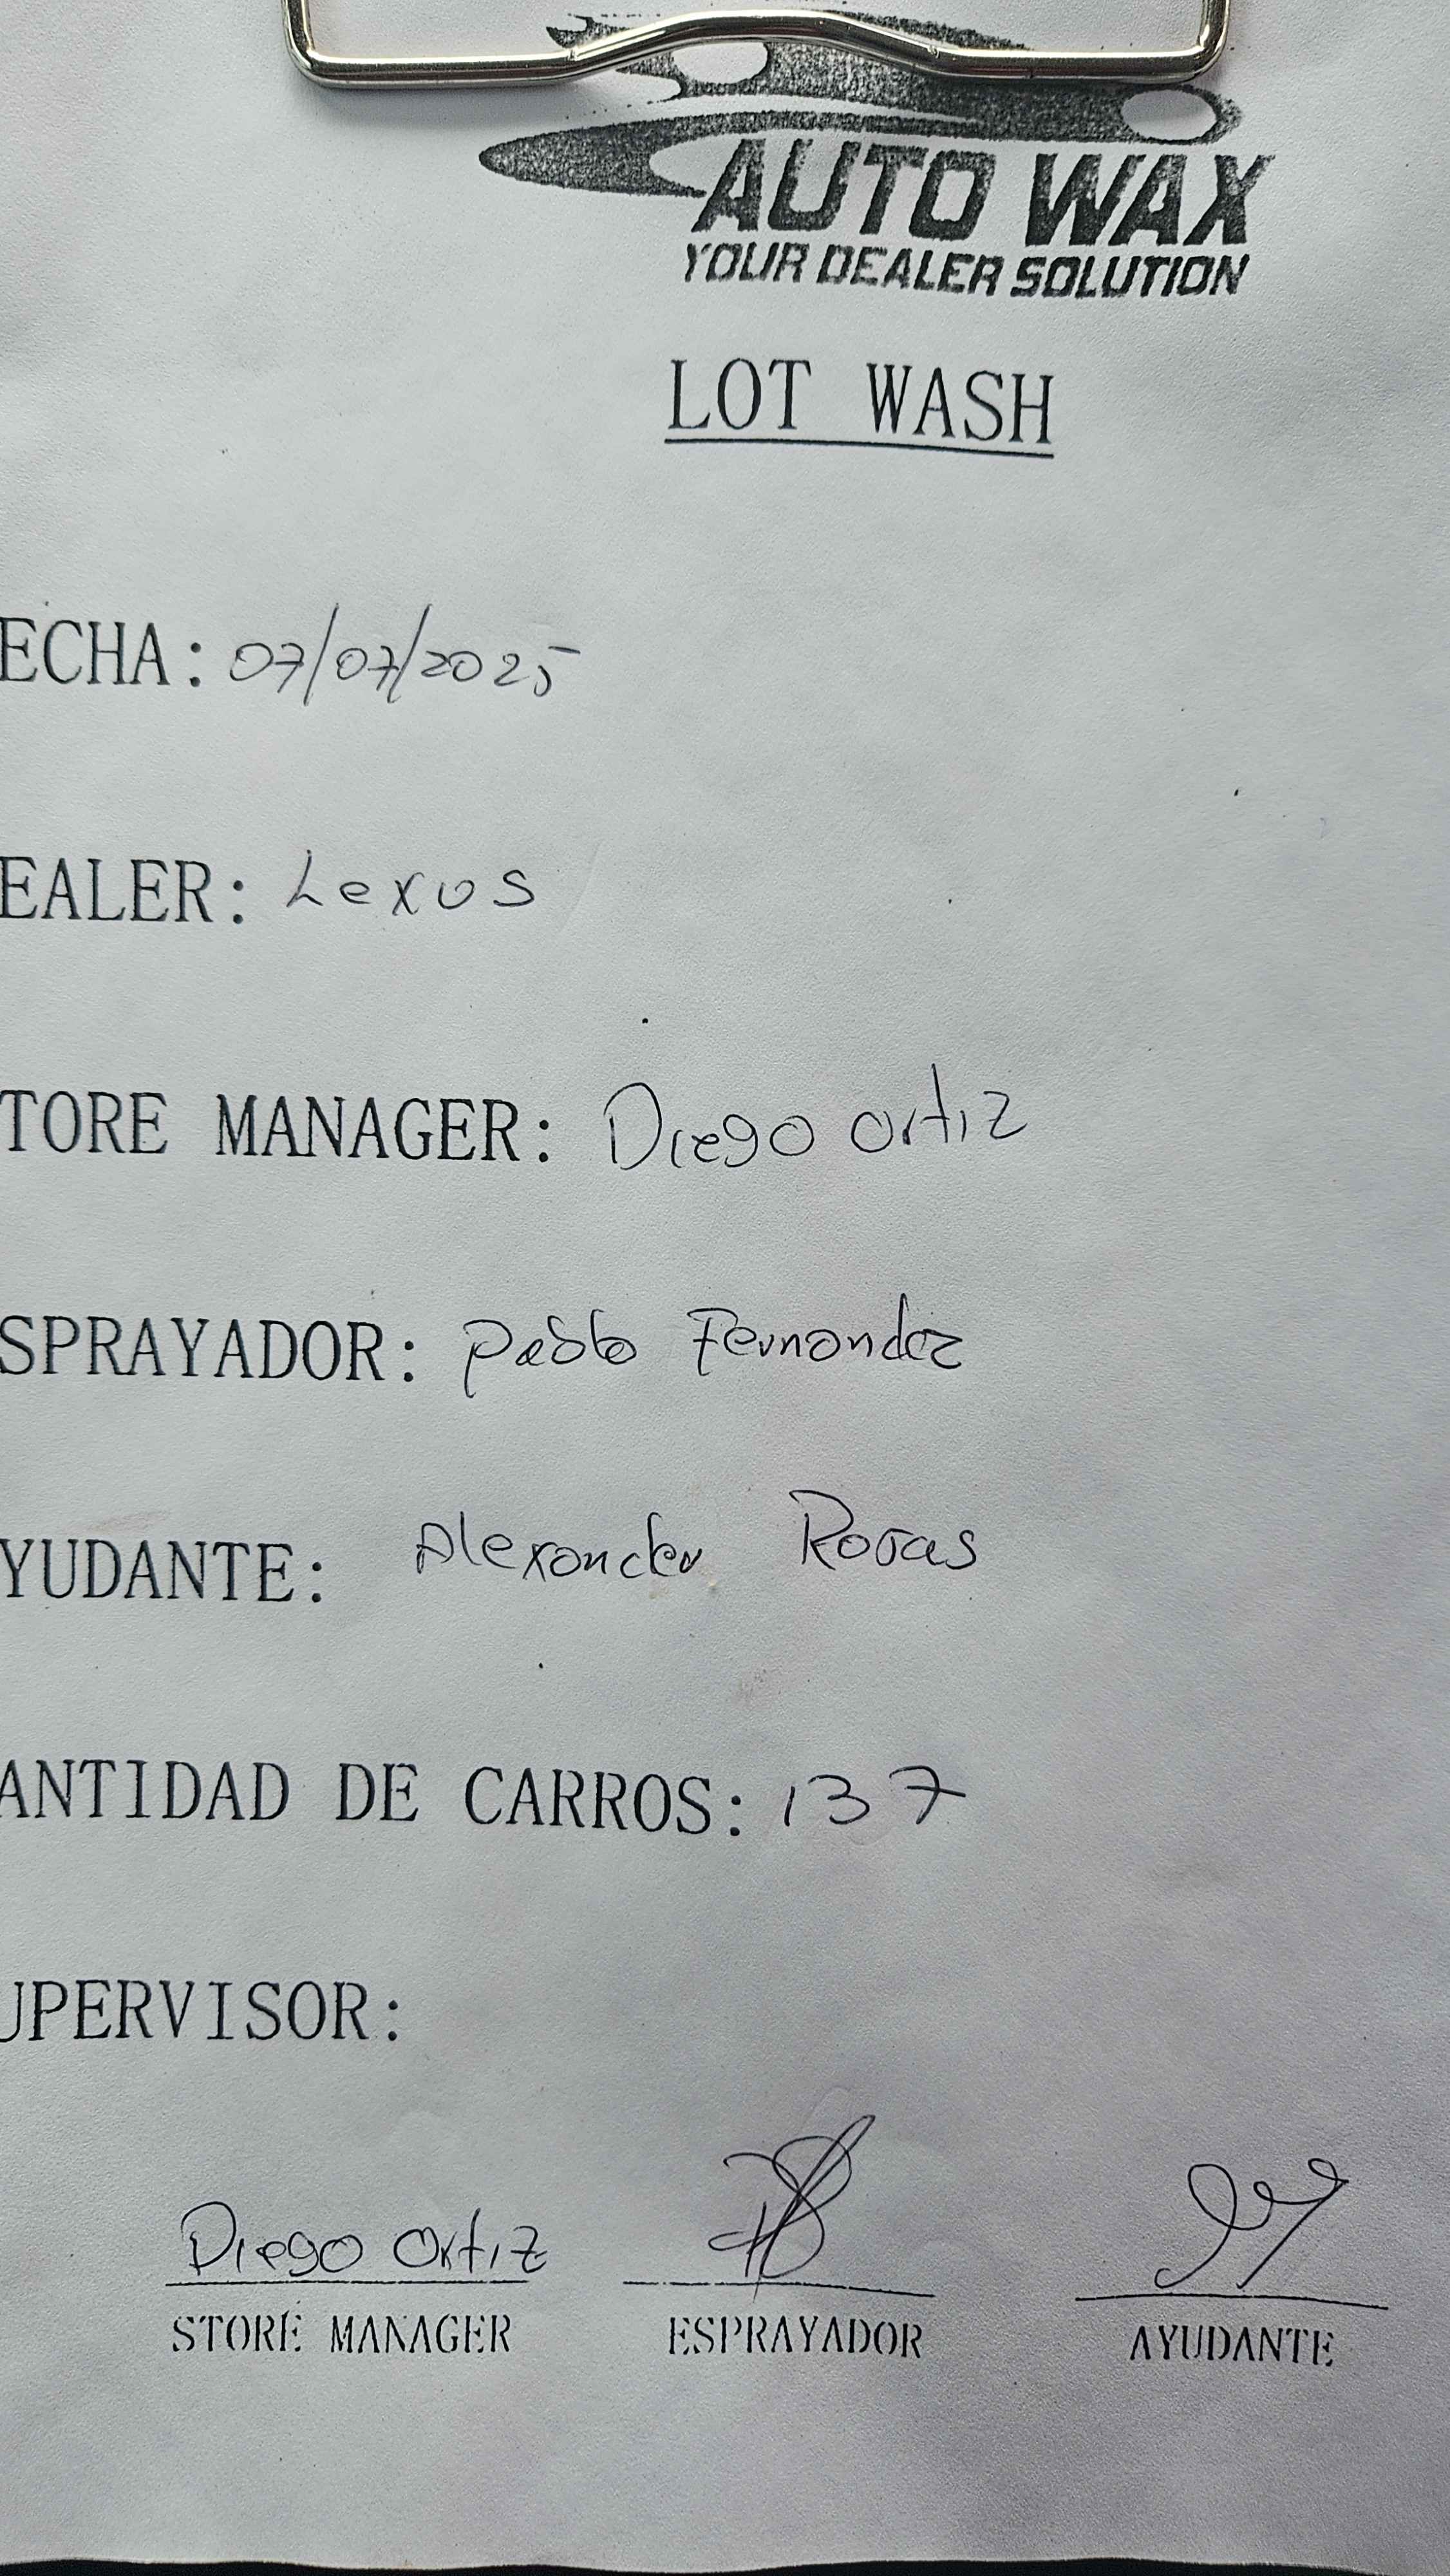 AUTO WAX
YOUR DEALER SOLUTION
LOT WASH
ECHA: 07/07/2025
EALER: Lexus
TORE MANAGER: Diego Ortiz
SPRAYADOR: Pablo Fernandez
YUDANTE: Alexander Rojas
ANTIDAD DE CARROS: 137
UPERVISOR:
Diego Ortiz
STORE MANAGER ESPRAYADOR AYUDANTE